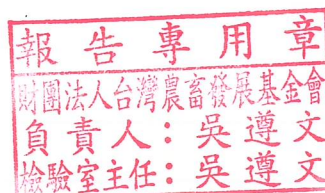 報告專用章
財團法人台灣農畜發展基金會
負責人：吳遵文
檢驗室主任：吳遵文